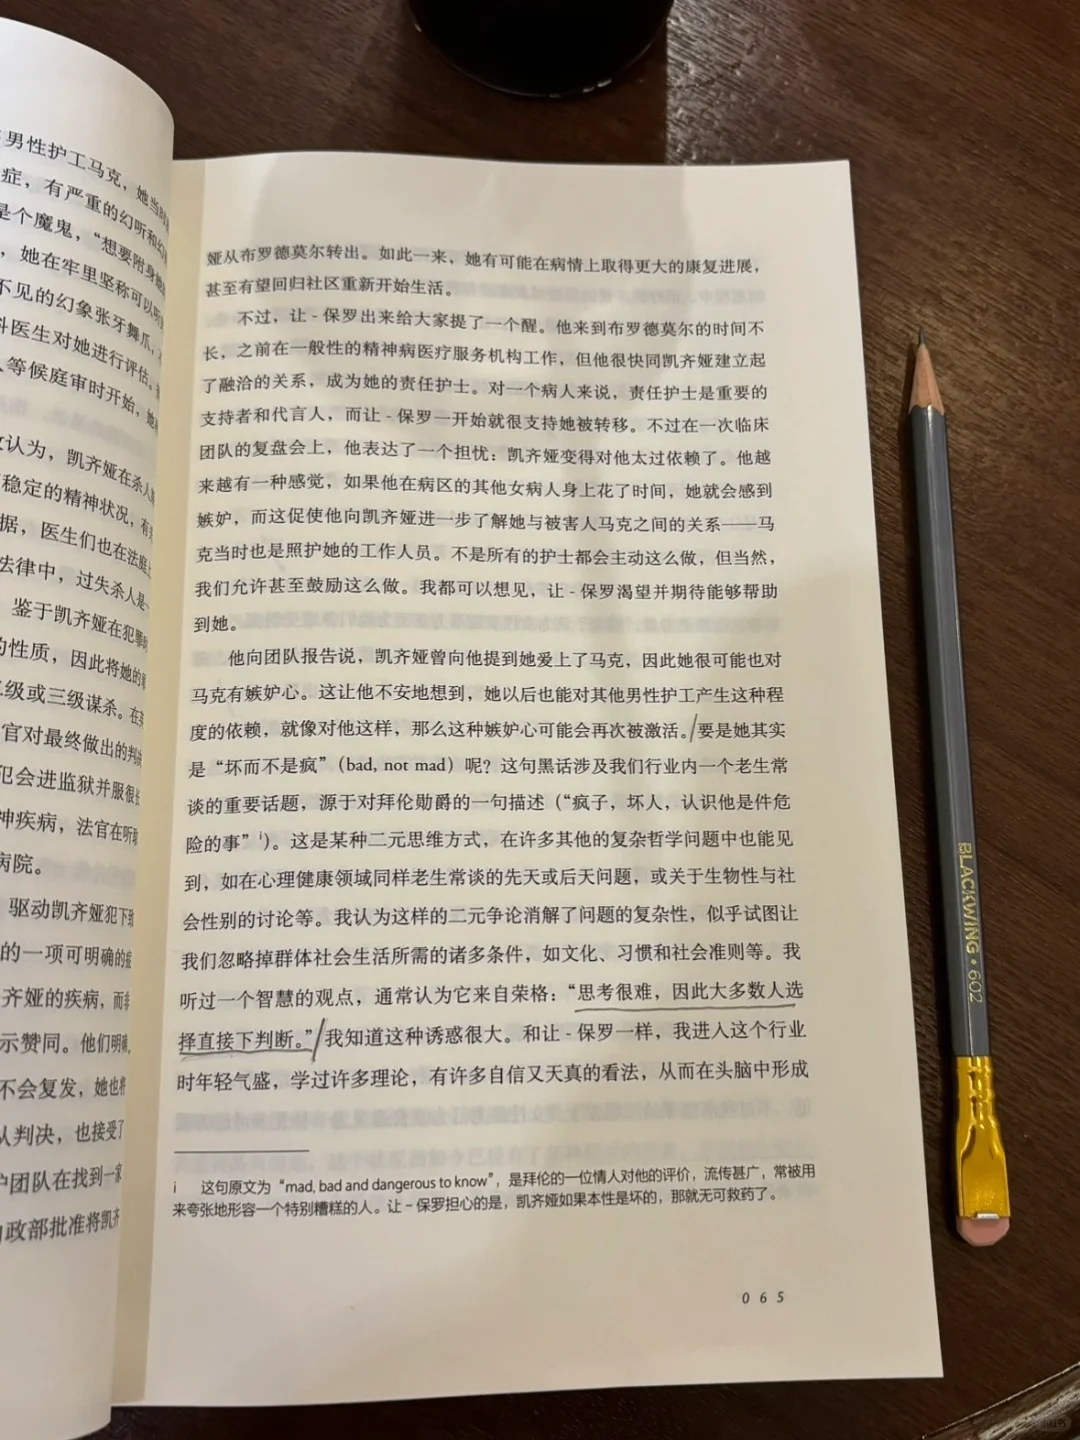 男性护工马克，她当时
症，有严重的幻听和幻
是个魔鬼，“想要附身她
，她在牢里坚称可以听
不见的幻象张牙舞爪，
科医生对她进行评估。
人等候庭审时开始，她
认为，凯齐娅在杀人
稳定的精神状况，有
据，医生们也在法庭
法律中，过失杀人是
鉴于凯齐娅在犯罪时
的性质，因此将她的罪
二级或三级谋杀。在英
官对最终做出的判决
犯会进监狱并服很长
神疾病，法官在听取
病院。
驱动凯齐娅犯下
的一项可明确的
齐娅的疾病，而
示赞同。他们明确，
不会复发，她也将
认判决，也接受了
护团队在找到一家
政部批准将凯齐
娅从布罗德莫尔转出。如此一来，她有可能在病情上取得更大的康复进展，
甚至有望回归社区重新开始生活。
不过，让-保罗出来给大家提了一个醒。他来到布罗德莫尔的时间不
长，之前在一般性的精神病医疗服务机构工作，但他很快同凯齐娅建立起
了融洽的关系，成为她的责任护士。对一个病人来说，责任护士是重要的
支持者和代言人，而让-保罗一开始就很支持她被转移。不过在一次临床
团队的复盘会上，他表达了一个担忧：凯齐娅变得对他太过依赖了。他越
来越有一种感觉，如果他在病区的其他女病人身上花了时间，她就会感到
嫉妒，而这促使他向凯齐娅进一步了解她与被害人马克之间的关系——马
克当时也是照护她的工作人员。不是所有的护士都会主动这么做，但当然，
我们允许甚至鼓励这么做。我都可以想见，让-保罗渴望并期待能够帮助
到她。
他向团队报告说，凯齐娅曾向他提到她爱上了马克，因此她很可能也对
马克有嫉妒心。这让他不安地想到，她以后也能对其他男性护工产生这种程
度的依赖，就像对他这样，那么这种嫉妒心可能会再次被激活。要是她其实
是“坏而不是疯”（bad, not mad）呢？这句黑话涉及我们行业内一个老生常
谈的重要话题，源于对拜伦勋爵的一句描述（“疯子，坏人，认识他是件危
险的事”ⁱ）。这是某种二元思维方式，在许多其他的复杂哲学问题中也能见
到，如在心理健康领域同样老生常谈的先天或后天问题，或关于生物性与社
会性别的讨论等。我认为这样的二元争论消解了问题的复杂性，似乎试图让
我们忽略掉群体社会生活所需的诸多条件，如文化、习惯和社会准则等。我
听过一个智慧的观点，通常认为它来自荣格：“思考很难，因此大多数人选
择直接下判断。”我知道这种诱惑很大。和让-保罗一样，我进入这个行业
时年轻气盛，学过许多理论，有许多自信又天真的看法，从而在头脑中形成
i 这句原文为“mad, bad and dangerous to know”，是拜伦的一位情人对他的评价，流传甚广，常被用
来夸张地形容一个特别糟糕的人。让-保罗担心的是，凯齐娅如果本性是坏的，那就无可救药了。
065
BLACKWING 602
小红书